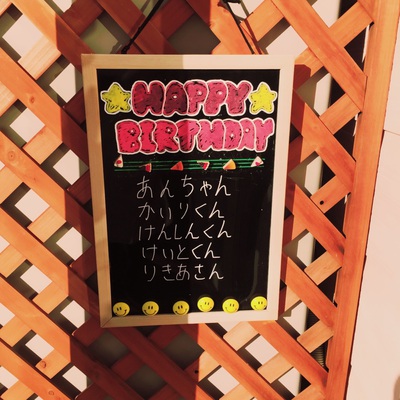 HAPPY
BIRTHDAY
あんちゃん
かいりくん
けんしんくん
けいとくん
りきあさん